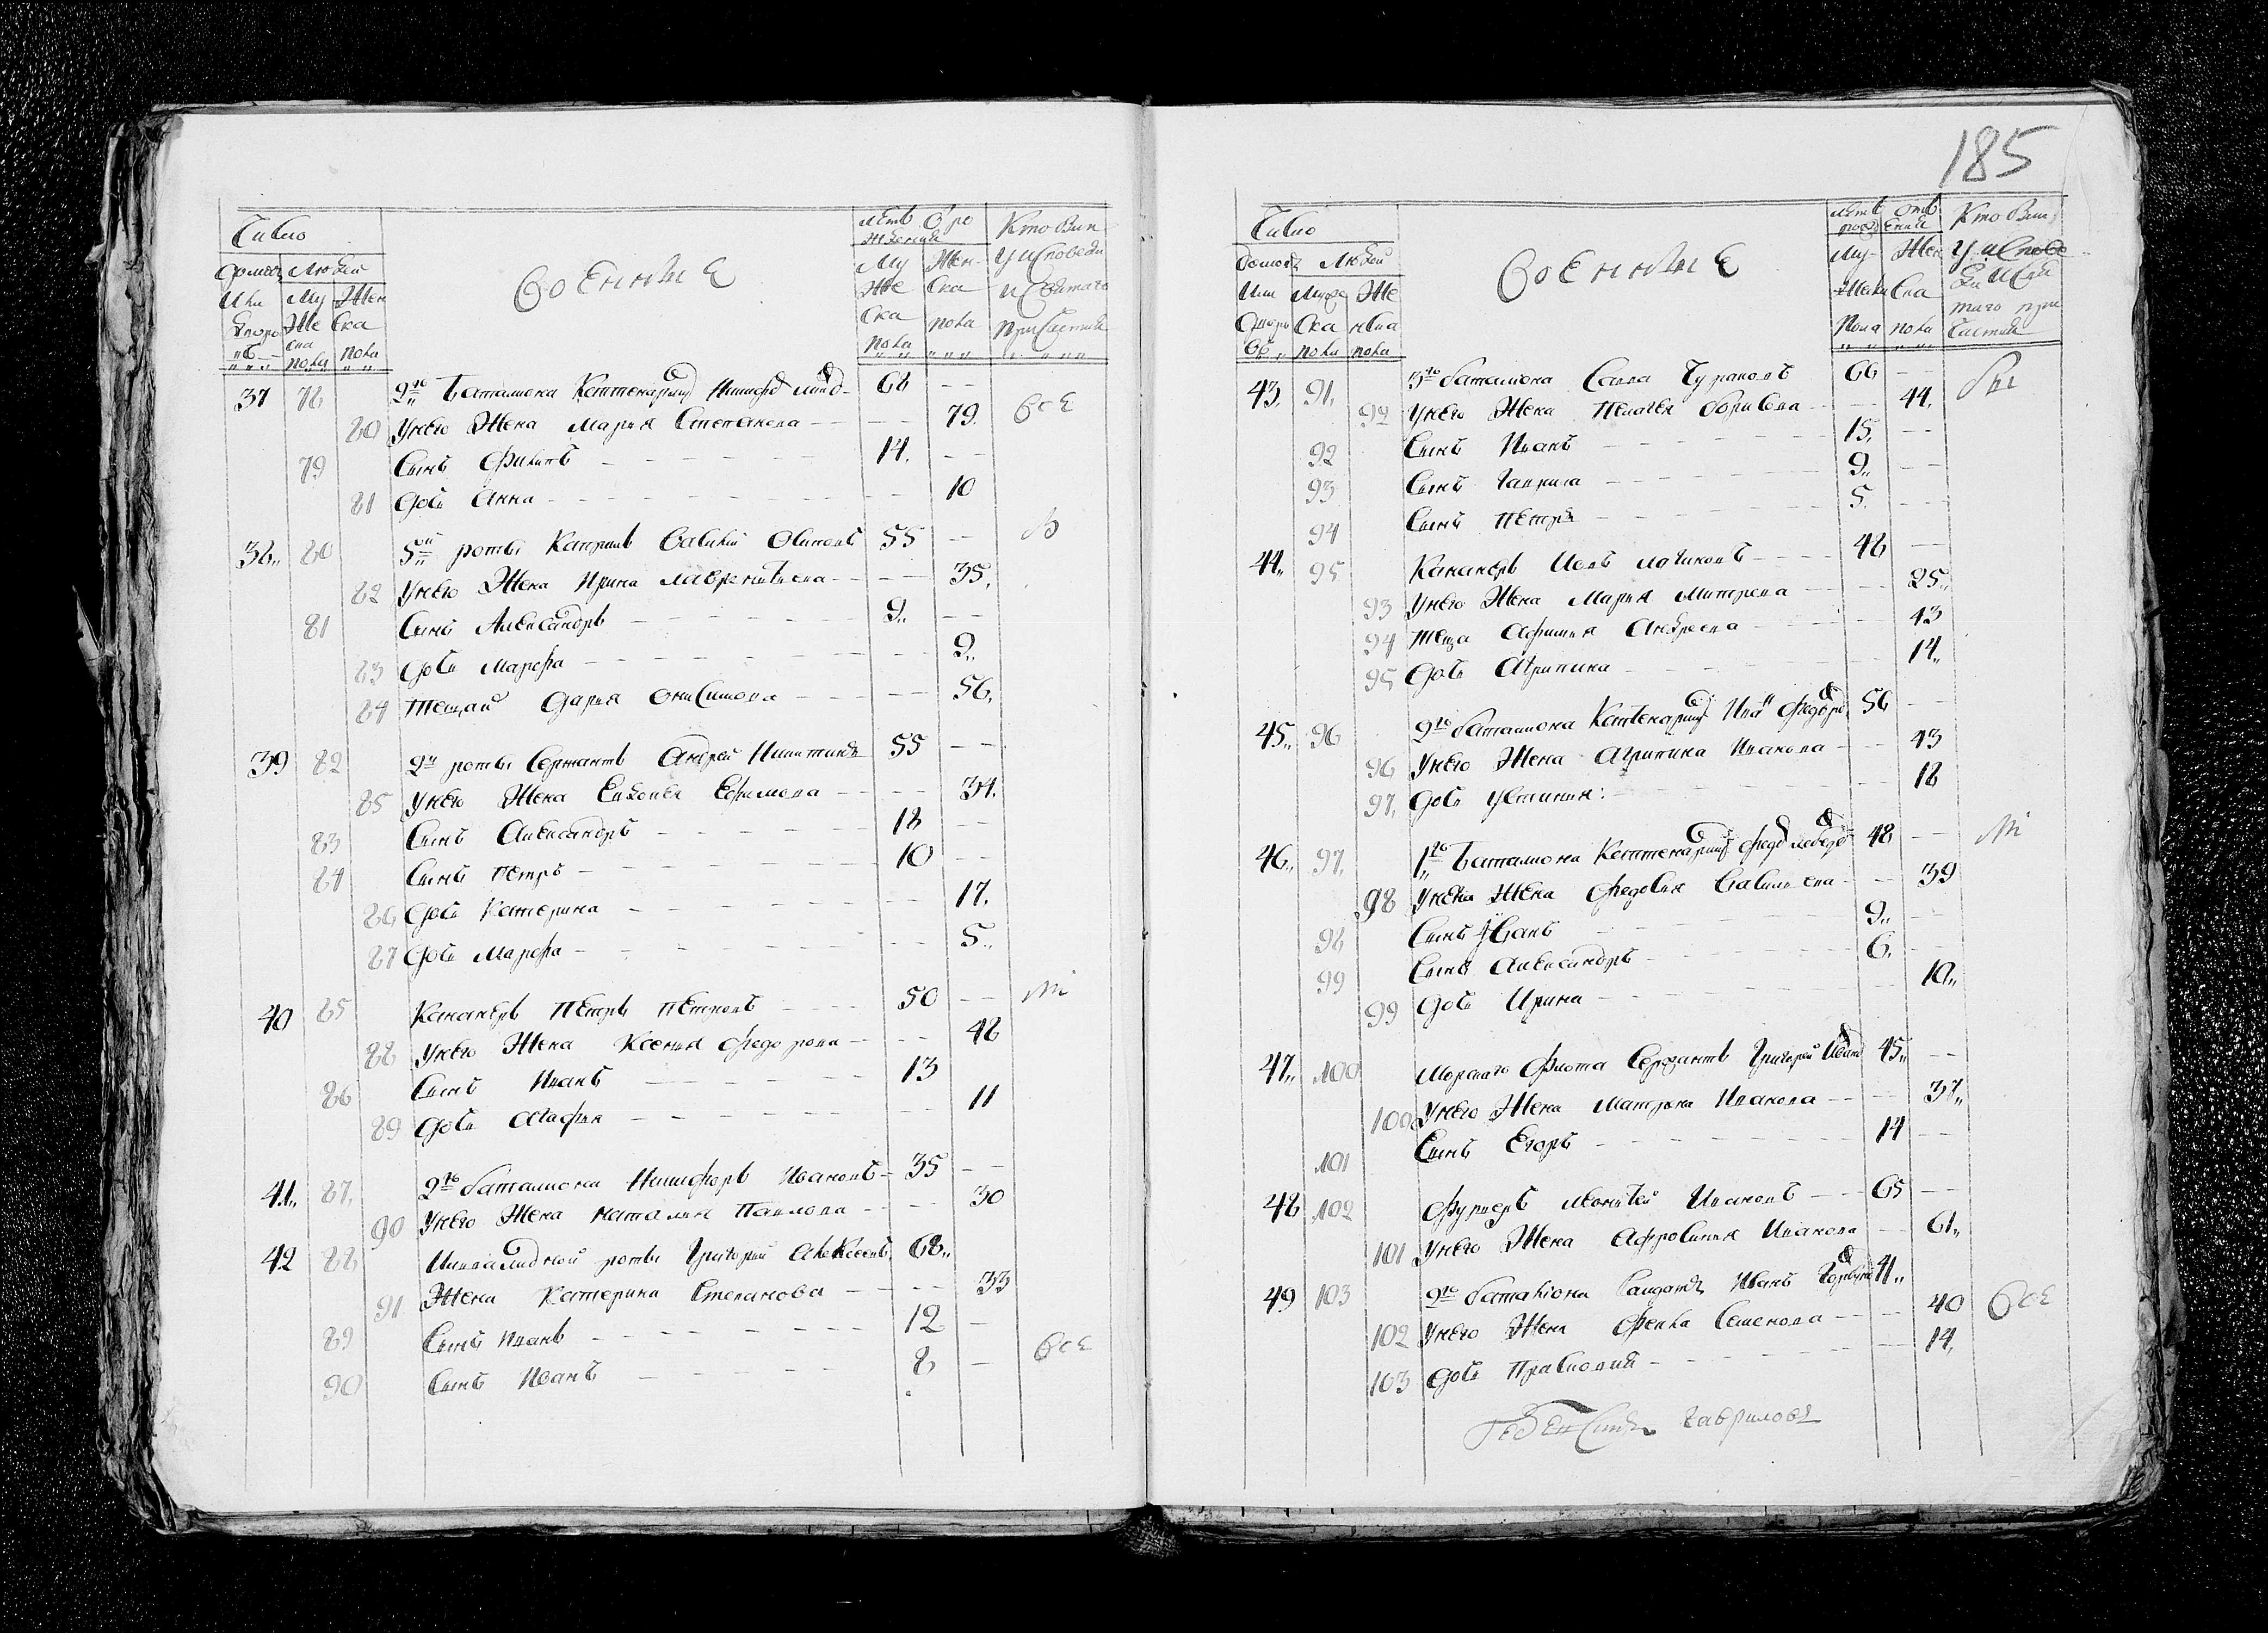 185
Число
Домовъ Людей
Или Му Жен
Дворо Же ска
въ ска пола
пола
Военные
Летъ О ро
ждения
Му Жен
же ска
ска пола
пола
Кто былъ
у исповеди
и святаго
причастия
37 78 2го Баталиона Каптенармусъ 68
80 У него Жена Марья Степанова 79 все
79 Сынъ Филипъ 14
81 Дочь Анна 10
38 80 5й роты Капралъ Василий 55
82 У него Жена Ирина Лаврентьева 35
81 Сынъ Александръ 9
83 Дочь Марфа 9
84 Теща Дарья Онисимова 56
39 82 2й роты Сержантъ Андрей Никитинъ 55
85 У него Жена Евдокея Ефимова 34
83 Сынъ Александръ 18
84 Сынъ Петръ 10
86 Дочь Катерина 17
87 Дочь Марфа 5
40 85 Кананеръ Петръ Петровъ 50
88 У него Жена Ксенья Федорова 48
86 Сынъ Иванъ 13
89 Дочь Агафья 11
41 87 2го баталиона Никифоръ Ивановъ 35
90 У него Жена Наталья Павлова 30
42 88 Инвалидной роты Григорий Алексеевъ 68
91 Жена Катерина Степанова 33
89 Сынъ Иванъ 12
90 Сынъ Иванъ 8 все
Число
Домовъ Людей
Или Муже Же
Дворо ска нска
въ пола пола
Военные
Летъ отъ
рождения
Му Жен
жска ска
пола пола
Кто былъ
у испове
ди и свя
таго при
частия
43 91 3го баталиона Савва 66
92 У него Жена Пелагея Борисова 44
92 Сынъ Иванъ 15
93 Сынъ Гаврила 9
94 Сынъ Петръ 5
44 95 Кананеръ 48
93 У него Жена Марья Митрева 25
94 Теща Афимья Андреева 43
95 Дочь Агрипина 14
45 96 2го баталиона Каптенармусъ Иванъ Федоровъ 56
96 У него Жена Агрипина Иванова 43
97 Дочь Устинья 18
46 97 1го Баталиона Каптенармусъ 48
98 У него Жена Федосья Васильева 39
98 Сынъ Исакъ 9
99 Сынъ Александръ 6
99 Дочь Ирина 10
47 100 Морскаго Флота Сержантъ Григорей Ивановъ 45
100 У него Жена Матрена Иванова 37
101 Сынъ Егоръ 14
48 102 Фурьеръ Ивановъ 65
101 У него Жена Афросинья Иванова 61
49 103 2го баталиона Солдатъ Иванъ 41
102 У него Жена Фекла Семенова 40 все
103 Дочь Прасковия 14
Гавриловъ